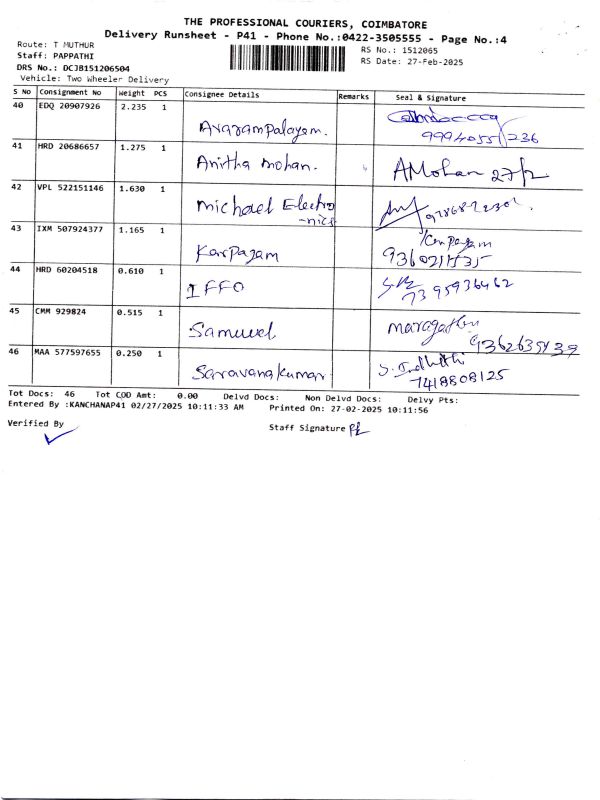 THE PROFESSIONAL COURIERS, COIMBATORE
Delivery Runsheet - P41 - Phone No.:0422-3505555 - Page No.:4
Route: T MUTHUR
Staff: PAPPATHI
DRS No.: DCJB151206504
Vehicle: Two Wheeler Delivery
RS No.: 1512065
RS Date: 27-Feb-2025
S No Consignment No Weight PCS Consignee Details Remarks Seal & Signature
40 EDQ 20907926 2.235 1 Avarampalayam.
41 HRD 20686657 1.275 1 Anitha mohan. AMohan 27/2
42 VPL 522151146 1.630 1 michael Electro
-nics
43 IXM 507924377 1.165 1 Karpagam
44 HRD 60204518 0.610 1 IFFO
7395936462
45 CMM 929824 0.515 1 Samuvel
46 MAA 577597655 0.250 1 Saravanakumar
7418808125
Tot Docs: 46 Tot COD Amt: 0.00 Delvd Docs: Non Delvd Docs: Delvy Pts:
Entered By :KANCHANAP41 02/27/2025 10:11:33 AM Printed On: 27-02-2025 10:11:56
Verified By
Staff Signature